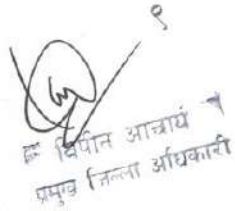 १
विपीन आचार्य
प्रमुख जिल्ला अधिकारी